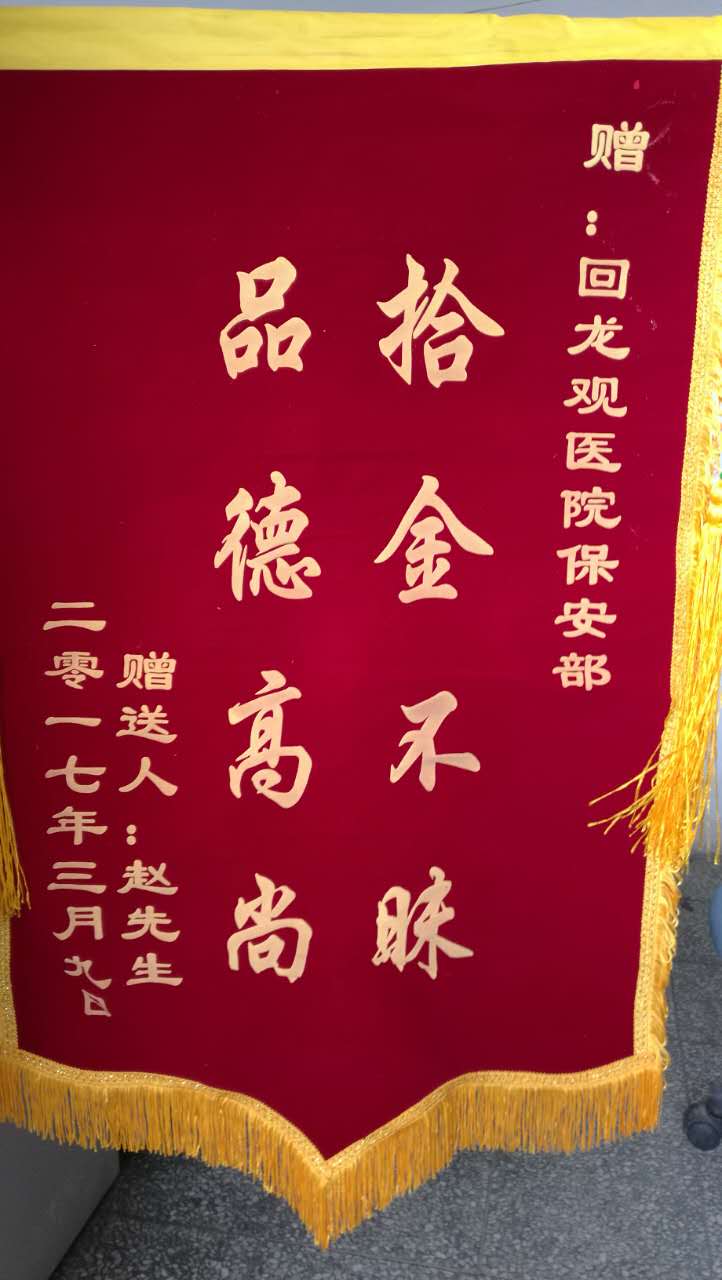 赠：回龙观医院保安部
拾金不昧
品德高尚
赠送人：赵先生
二零一七年三月九日